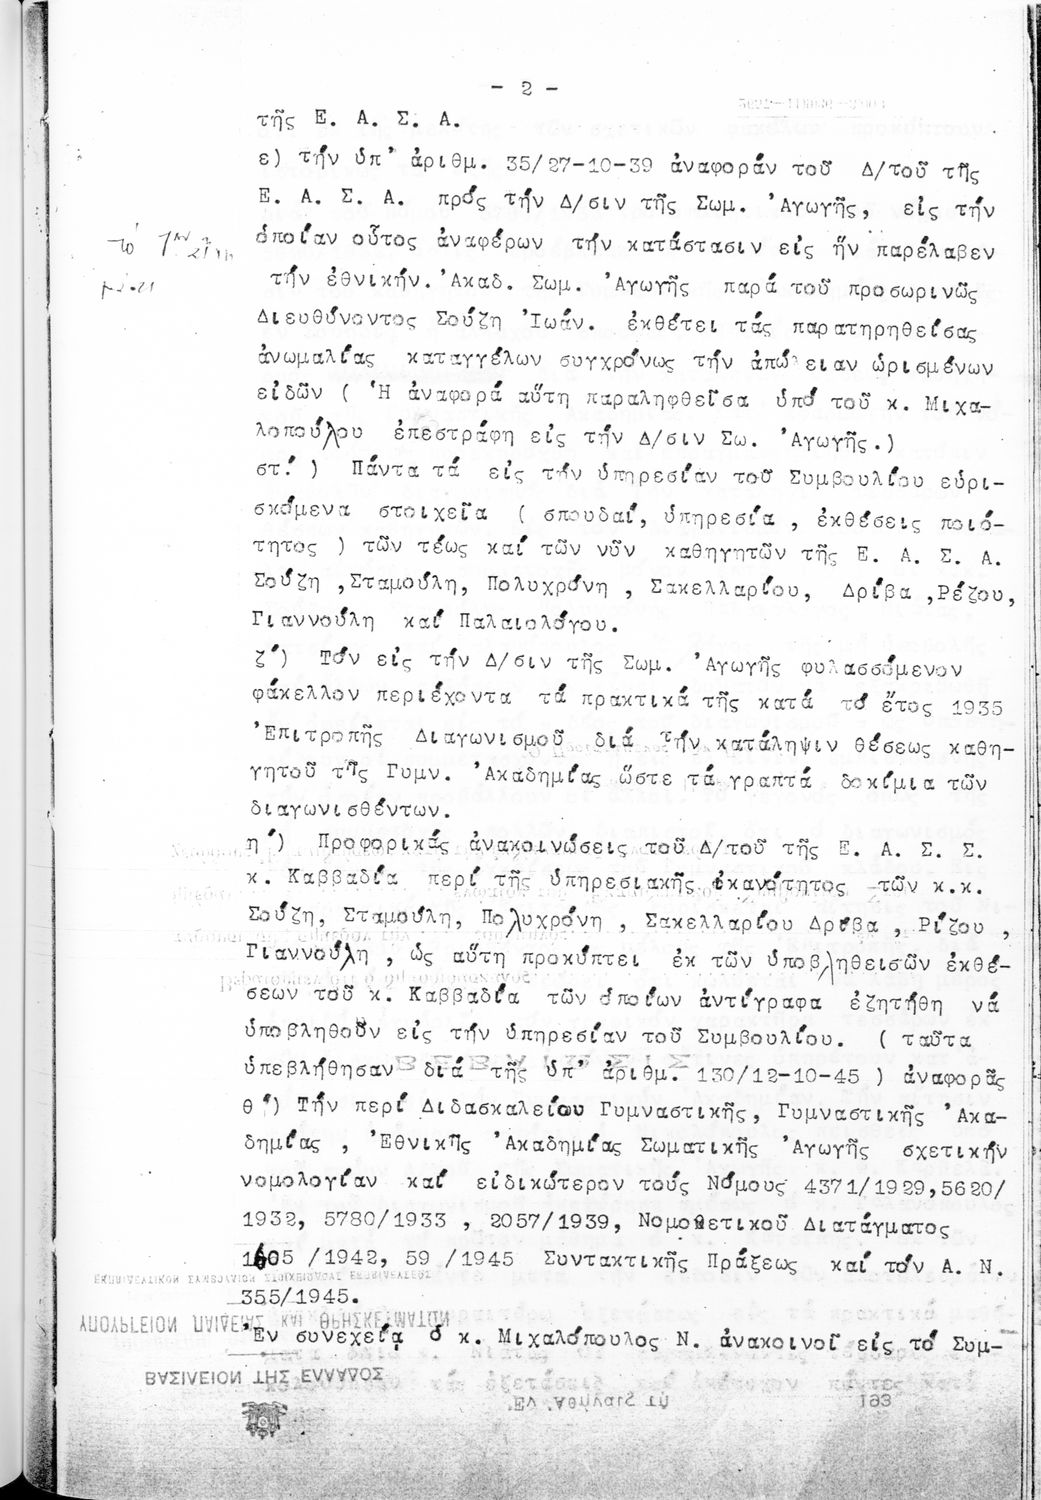 - 2 -
τῆς Ε. Α. Σ. Α.
ε) τήν ὑπ' ἀριθμ. 35/27-10-39 ἀναφοράν τοῦ Δ/τοῦ τῆς
Ε. Α. Σ. Α. πρός τήν Δ/σιν τῆς Σωμ. Ἀγωγῆς, εἰς τήν
ὁποίαν οὗτος ἀναφέρων τήν κατάστασιν εἰς ἥν παρέλαβεν
τήν ἐθνικήν. Ἀκαδ. Σωμ. Ἀγωγῆς παρά τοῦ προσωρινῶς
Διευθύνοντος Σούζη Ἰωάν. ἐκθέτει τάς παρατηρηθείσας
ἀνωμαλίας καταγγέλων συγχρόνως τήν ἀπώ ειαν ὡρισμένων
εἰδῶν ( Ἡ ἀναφορά αὕτη παραληφθεῖσα ὑπό τοῦ κ. Μιχα-
λοπούλου ἐπεστράφη εἰς τήν Δ/σιν Σω. Ἀγωγῆς.)
στ.' ) Πάντα τά εἰς τήν ὑπηρεσίαν τοῦ Συμβουλίου εὑρι-
σκόμενα στοιχεῖα ( σπουδαί, ὑπηρεσία , ἐκθέσεις ποιό-
τητος ) τῶν τέως καί τῶν νῦν καθηγητῶν τῆς Ε. Α. Σ. Α.
Σούζη ,Σταμούλη, Πολυχρόνη , Σακελλαρίου, Δρίβα ,Ρέζου,
Γιαννούλη καί Παλαιολόγου.
ζ') Τόν εἰς τήν Δ/σιν τῆς Σωμ. Ἀγωγῆς φυλασσόμενον
φάκελλον περιέχοντα τά πρακτικά τῆς κατά τό ἔτος 1935
Ἐπιτροπῆς Διαγωνισμοῦ διά τήν κατάληψιν θέσεως καθη-
γητοῦ τῆς Γυμν. Ἀκαδημίας ὥστε τά γραπτά δοκίμια τῶν
διαγωνισθέντων.
η') Προφορικάς ἀνακοινώσεις τοῦ Δ/τοῦ τῆς Ε. Α. Σ. Σ.
κ. Καββαδία περί τῆς ὑπηρεσιακῆς ἱκανότητος τῶν κ.κ.
Σούζη, Σταμούλη, Πολυχρόνη , Σακελλαρίου Δρίβα , Ρίζου ,
Γιαννούλη , ὡς αὕτη προκύπτει ἐκ τῶν ὑποβληθεισῶν ἐκθέ-
σεων τοῦ κ. Καββαδία τῶν ὁποίων ἀντίγραφα ἐζητήθη νά
ὑποβληθοῦν εἰς τήν ὑπηρεσίαν τοῦ Συμβουλίου. ( ταῦτα
ὑπεβλήθησαν διά τῆς ὑπ' ἀριθμ. 130/12-10-45 ) ἀναφορᾶς
θ') Τήν περί Διδασκαλείου Γυμναστικῆς, Γυμναστικῆς Ἀκα-
δημίας , Ἐθνικῆς Ἀκαδημίας Σωματικῆς Ἀγωγῆς σχετικήν
νομολογίαν καί εἰδικώτερον τούς Νόμους 4371/1929,5620/
1932, 5780/1933 , 2057/1939, Νομοθετικοῦ Διατάγματος
1605 /1942, 59 /1945 Συντακτικῆς Πράξεως καί τόν Α. Ν.
355/1945.
Ἐν συνεχείᾳ ὁ κ. Μιχαλόπουλος Ν. ἀνακοινοῖ εἰς τό Συμ-
ΒΑΣΙΛΕΙΟΝ ΤΗΣ ΕΛΛΑΔΟΣ
Ἐν Ἀθήναις τῇ 193